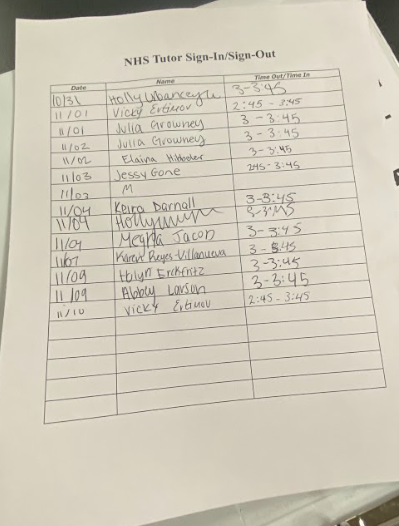 NHS Tutor Sign-In/Sign-Out
Date Name Time Out/Time In
10/31 Holly 3-3:45
11/01 Vicky 2:45 - 3:45
11/01 Julia Growney 3 - 3:45
11/02 Julia Growney 3 - 3:45
11/02 Elaina 3 - 3:45
11/03 Jessy Gone 245 - 3:45
11/03 M
11/04 Keira Darnall 3-3:45
11/04 Holly
11/04 Megha Jacob 3 - 3:45
11/07 Karen Reyes-Villanueva 3 - 3:45
11/09 3-3:45
11/09 Abbey Larson 3-3:45
11/10 Vicky 2:45 - 3:45